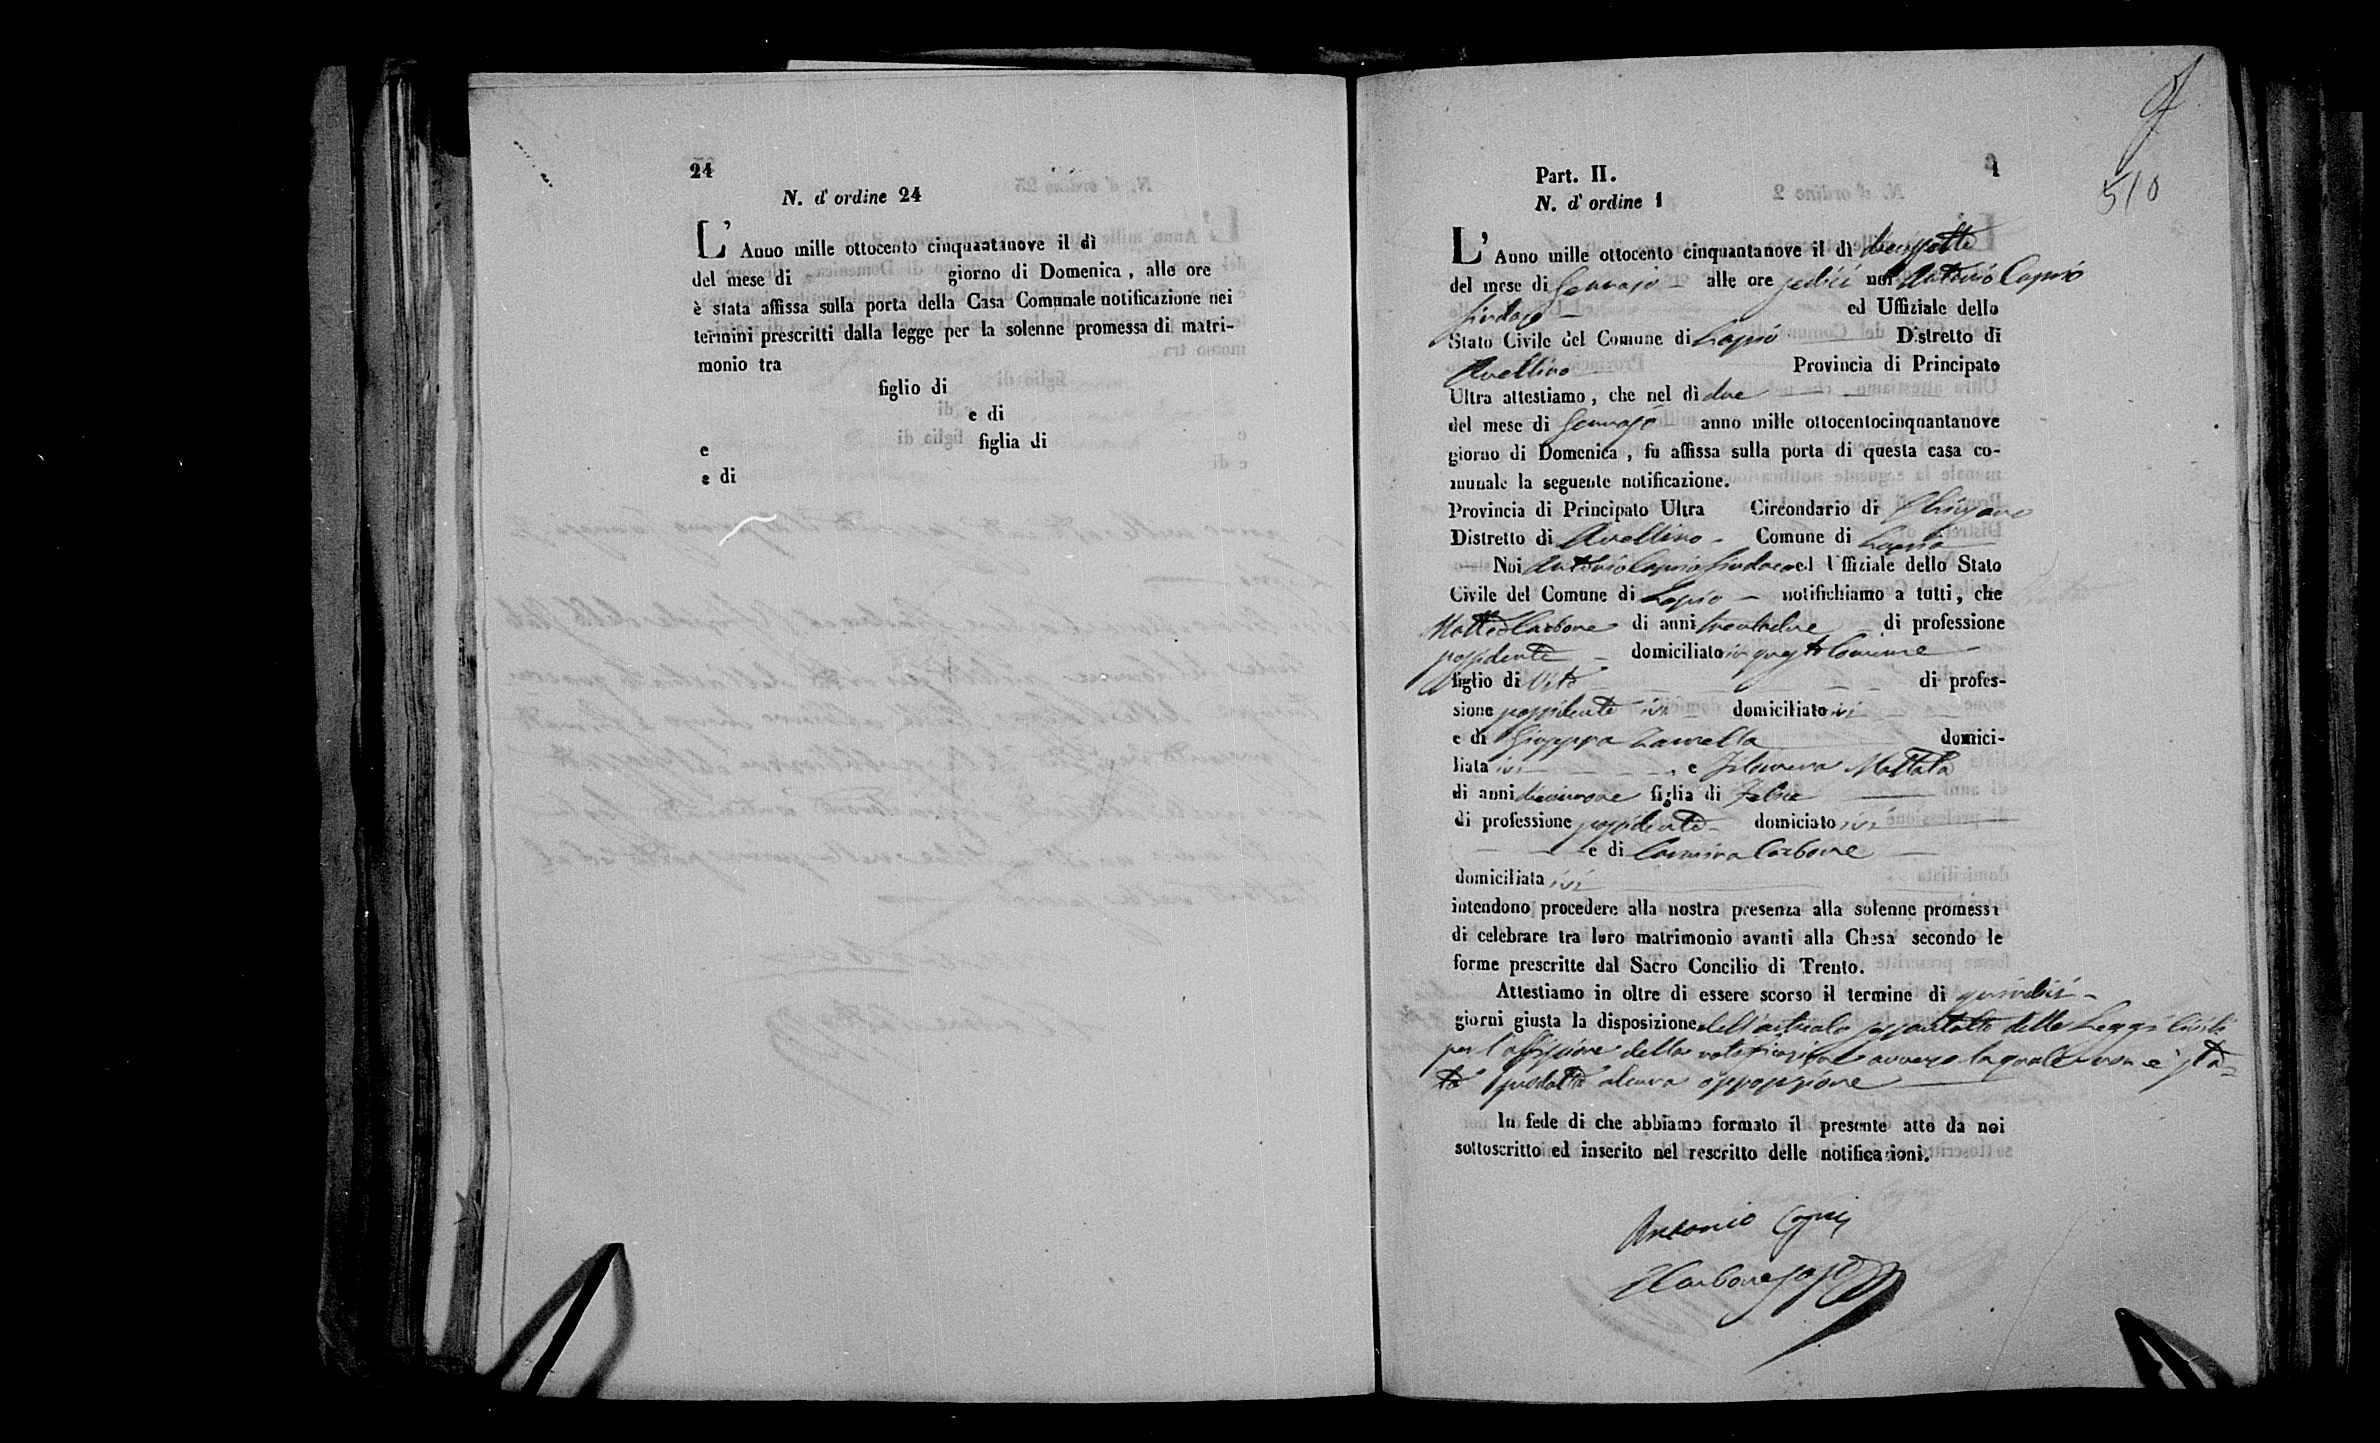 24
N. d' ordine 24
L' Anno mille ottocento cinquantanove il dì
del mese di giorno di Domenica , alle ore
è stata affissa sulla porta della Casa Comunale notificazione nei
termini prescritti dalla legge per la solenne promessa di matri-
monio tra
figlio di
e di
e figlia di
e di
Part. II. 1
N. d' ordine 1
510
L' Anno mille ottocento cinquantanove il dì diecissette
del mese di Gennajo alle ore sedici noi Antonio Caprio
Sindaco ed Uffiziale dello
Stato Civile del Comune di Lapio Distretto di
Avellino Provincia di Principato
Ultra attestiamo , che nel dì due
del mese di Gennajo anno mille ottocentocinquantanove
giorno di Domenica , fu affissa sulla porta di questa casa co-
munale la seguente notificazione.
Provincia di Principato Ultra Circondario di Chiusano
Distretto di Avellino Comune di Lapio
Noi Antonio Caprio Sindaco ed Uffiziale dello Stato
Civile del Comune di Lapio notifichiamo a tutti, che
Matteo Carbone di anni trentadue di professione
possidente domiciliato in questo Comune
figlio di Vito di profes-
sione possidente ivi domiciliato ivi
e di Giuseppa Zarrella domici-
liata ivi e Filomena Mottola
di anni diecinnove figlia di Felice
di professione possidente domiciato ivi
e di Carmina Carbone
domiciliata ivi
intendono procedere alla nostra presenza alla solenne promessa
di celebrare tra loro matrimonio avanti alla Chesa secondo le
forme prescritte dal Sacro Concilio di Trento.
Attestiamo in oltre di essere scorso il termine di quindici
giorni giusta la disposizione dell'articolo sessantotto delle Leggi Civili
per l'affissione della notificazione avverso la quale non è sta-
ta prodotta alcuna opposizione
In fede di che abbiamo formato il presente atto da noi
sottoscritto ed inserito nel rescritto delle notificazioni.
Antonio Caprio
Carbone